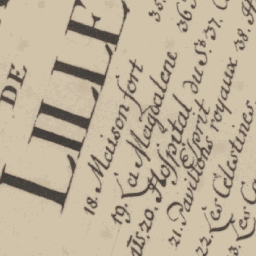 DE
LILLE
18. Maison fort
19. La Magdalene
20. Hospital du St.
Esprit
21. Pavillons royaux
22. Les Celestines
35.
36
37.
38.